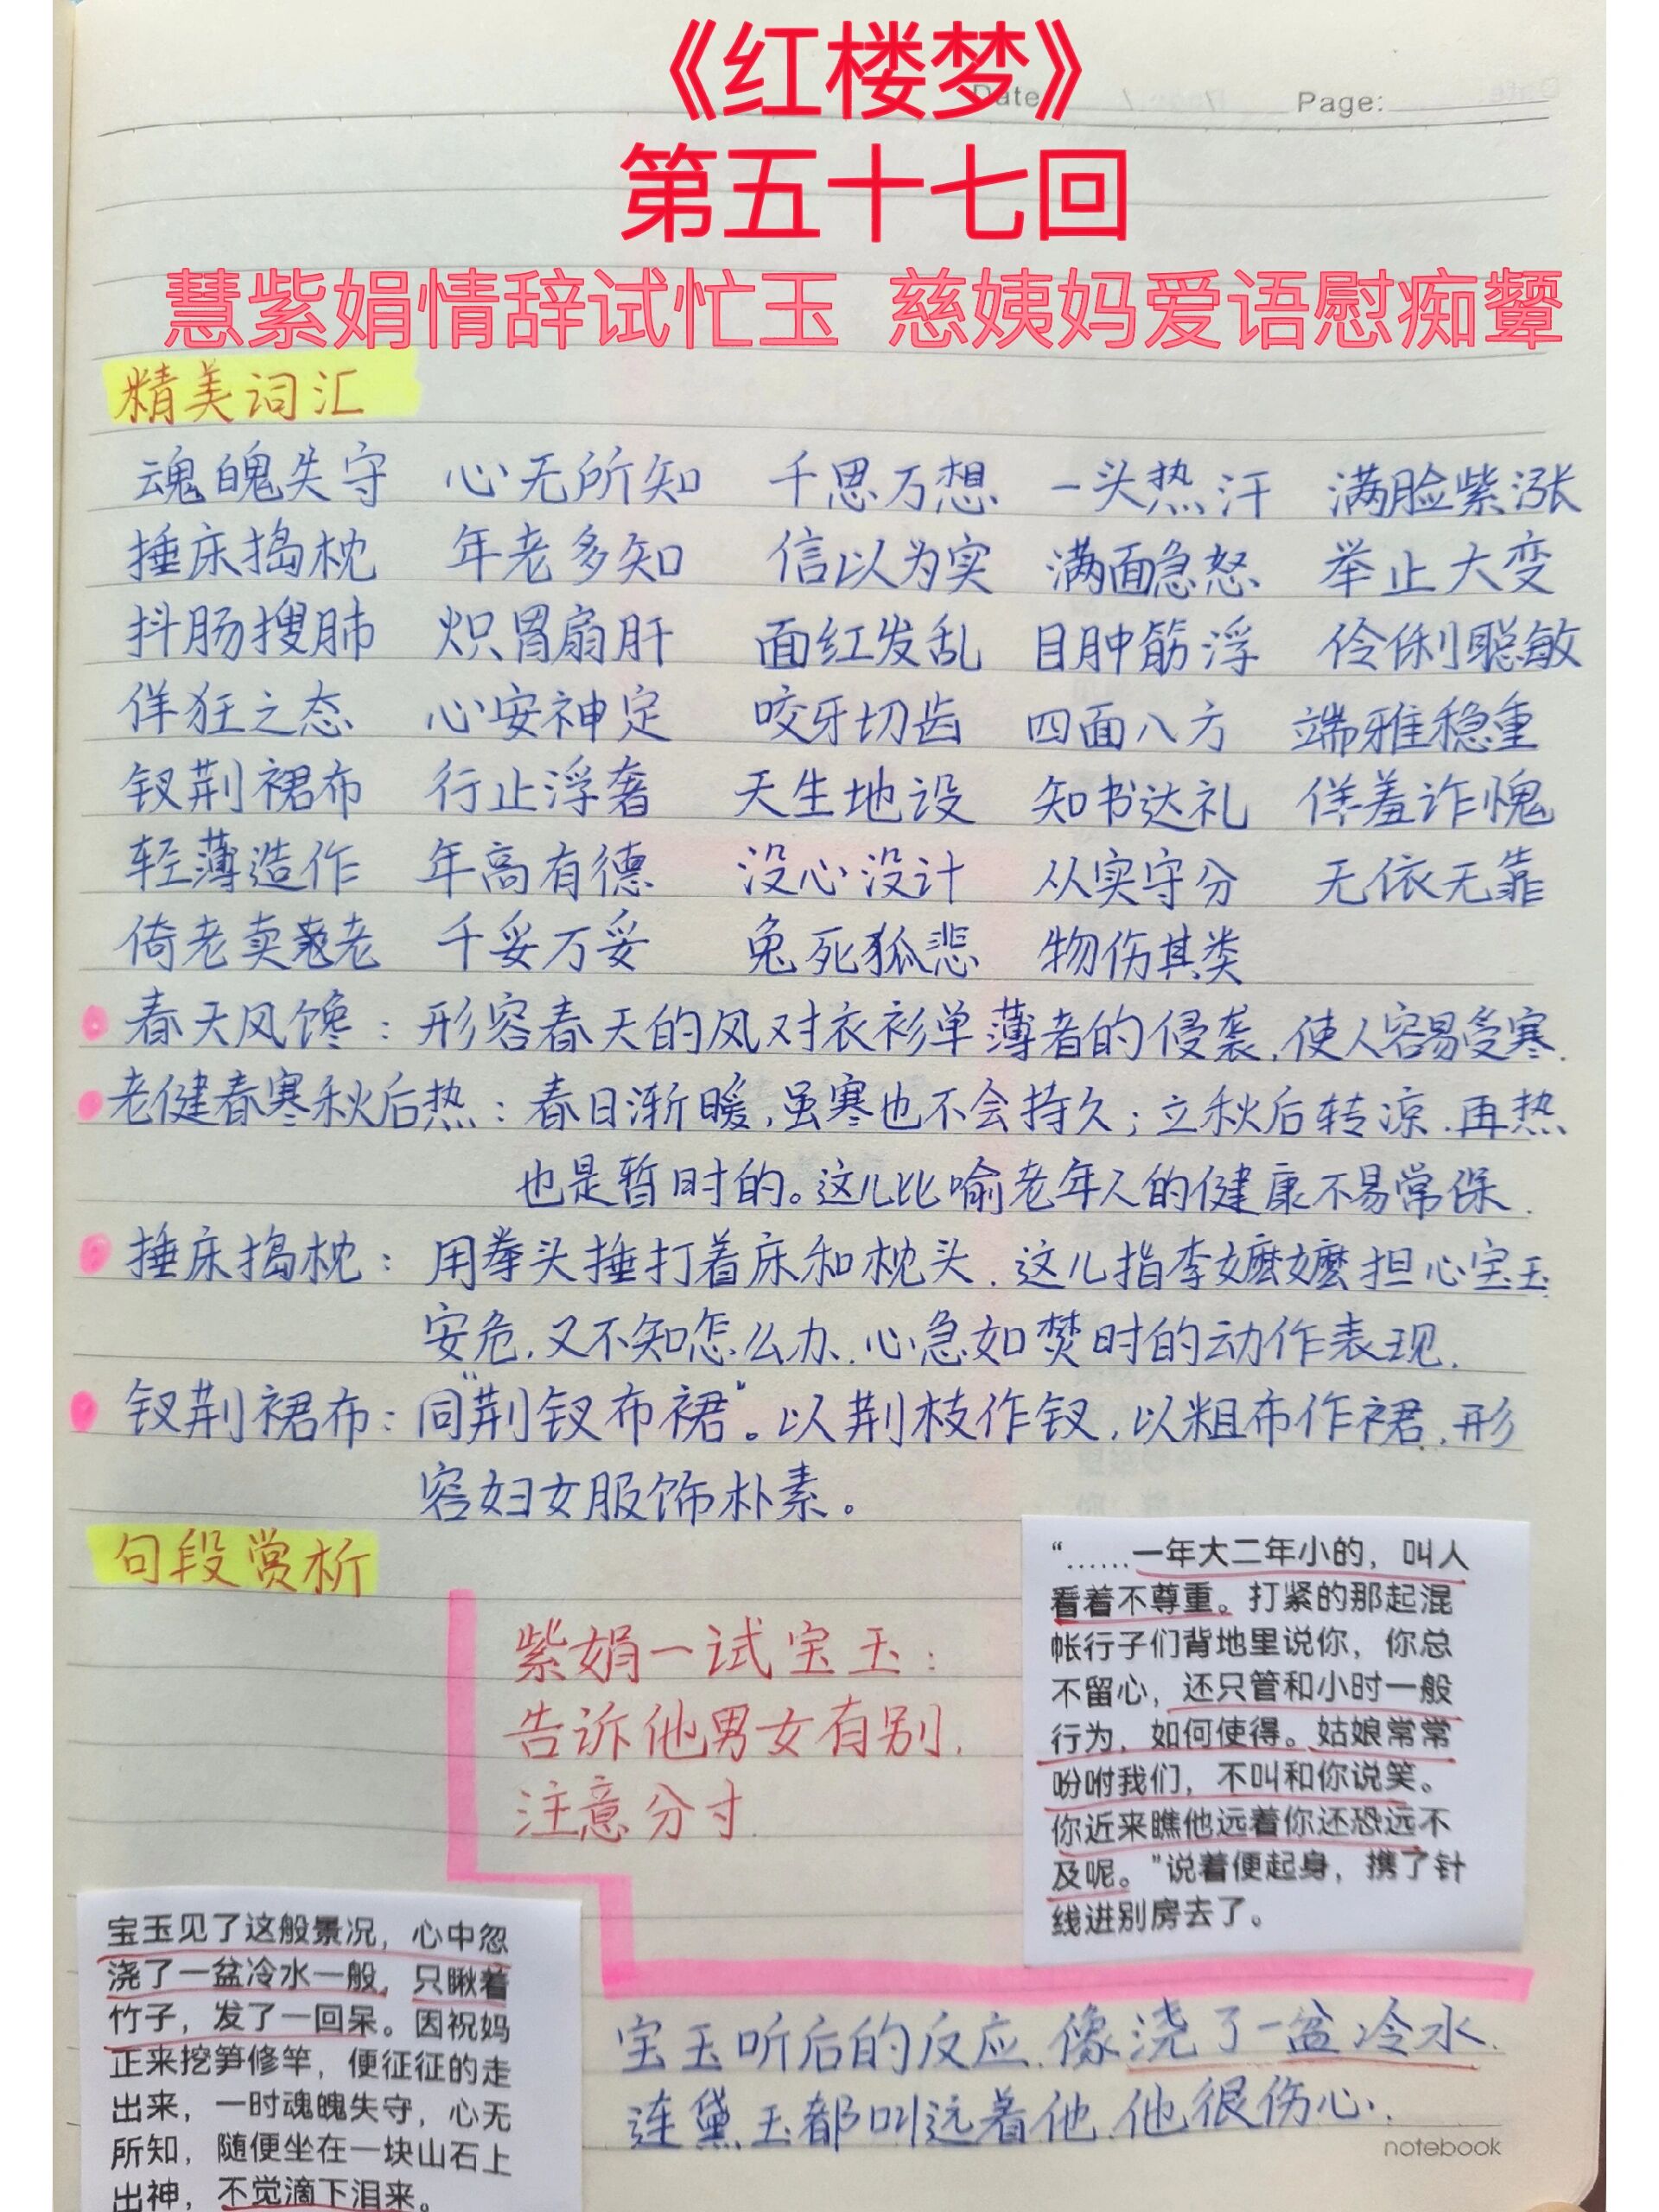 《红楼梦》
Date
Page:
第五十七回
慧紫娟情辞试忙玉 慈姨妈爱语慰痴颦
精美词汇
魂魄失守 心无所知 千思万想 一头热汗 满脸紫涨
捶床捣枕 年老多知 信以为实 满面急怒 举止大变
抖肠搜肺 炽胃扇肝 面红发乱 目肿筋浮 伶俐聪敏
佯狂之态 心安神定 咬牙切齿 四面八方 端雅稳重
钗荆裙布 行止浮奢 天生地设 知书达礼 佯羞诈愧
轻薄造作 年高有德 没心没计 从实守分 无依无靠
倚老卖老 千妥万妥 兔死狐悲 物伤其类
春天风馋：形容春天的风对衣衫单薄者的侵袭，使人容易受寒.
老健春寒秋后热：春日渐暖，虽寒也不会持久；立秋后转凉，再热
也是暂时的。这儿比喻老年人的健康不易常保.
捶床捣枕：用拳头捶打着床和枕头，这儿指李嬷嬷担心宝玉
安危，又不知怎么办，心急如焚时的动作表现.
钗荆裙布：同“荆钗布裙”。以荆枝作钗，以粗布作裙，形
容妇女服饰朴素。
句段赏析
紫娟一试宝玉：
告诉他男女有别，
注意分寸.
“……一年大二年小的，叫人
看着不尊重。打紧的那起混
帐行子们背地里说你，你总
不留心，还只管和小时一般
行为，如何使得。姑娘常常
吩咐我们，不叫和你说笑。
你近来瞧他远着你还恐远不
及呢。”说着便起身，携了针
线进别房去了。
宝玉见了这般景况，心中忽
浇了一盆冷水一般，只瞅着
竹子，发了一回呆。因祝妈
正来挖笋修竿，便怔怔的走
出来，一时魂魄失守，心无
所知，随便坐在一块山石上
出神，不觉滴下泪来。
宝玉听后的反应，像浇了一盆冷水.
连黛玉都叫远着他，他很伤心.
notebook